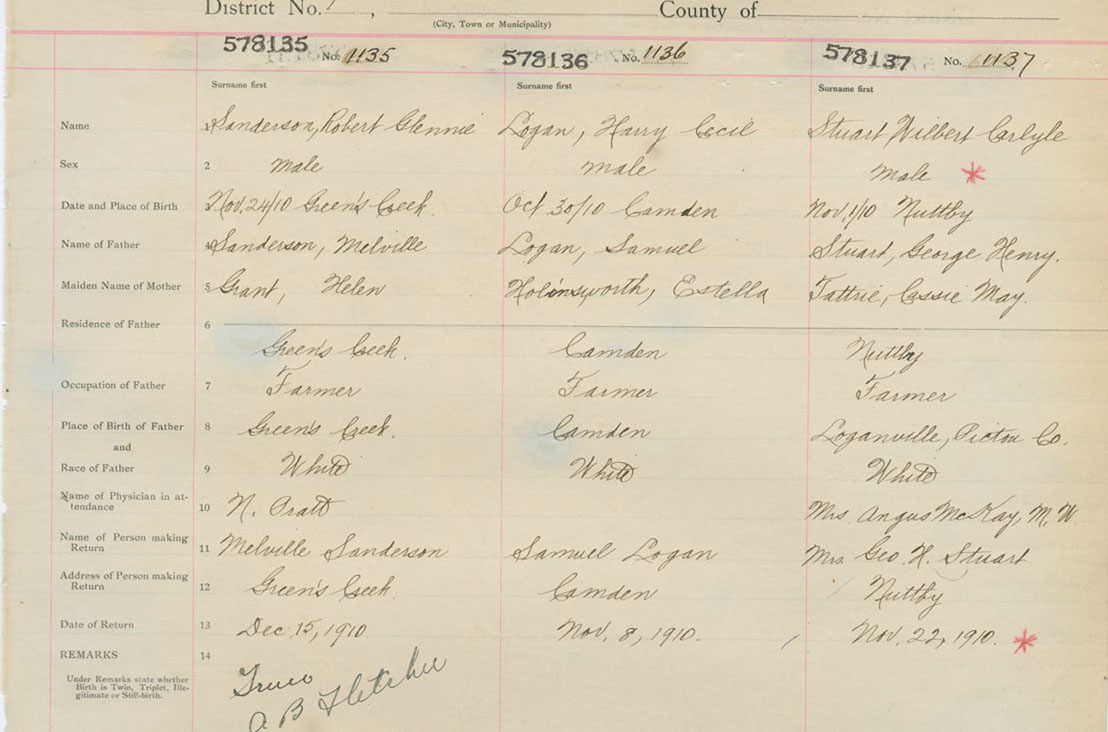 District No. , County of
(City, Town or Municipality)
578135 No. 1135 578136 No. 1136 578137 No. 1137
Surname first Surname first Surname first
Name 1 Sanderson, Robert Glennie Logan, Harry Cecil Stuart Wilbert Carlyle
Sex 2 Male male male *
Date and Place of Birth 3 Nov. 24/10 Green's Creek. Oct 30/10 Camden Nov. 1/10 Nuttby
Name of Father 4 Sanderson, Melville Logan, Samuel Stuart, George Henry.
Maiden Name of Mother 5 Grant, Helen Holinsworth, Estella Tattrie, Cassie May.
Residence of Father 6
Green's Creek. Camden Nuttby
Occupation of Father 7 Farmer Farmer Farmer
Place of Birth of Father 8 Green's Creek. Camden Loganville, Pictou Co.
and
Race of Father 9 White White White
Name of Physician in at-
tendance 10 N. Pratt Mrs. Angus McKay, M. W.
Name of Person making
Return 11 Melville Sanderson Samuel Logan Mrs. Geo. H. Stuart
Address of Person making
Return 12 Green's Creek. Camden Nuttby
Date of Return 13 Dec. 15, 1910. Nov. 8, 1910. Nov. 22, 1910. *
REMARKS 14
Under Remarks state whether
Birth is Twin, Triplet, Ille-
gitimate or Still-birth.
Truro
A B Fletcher